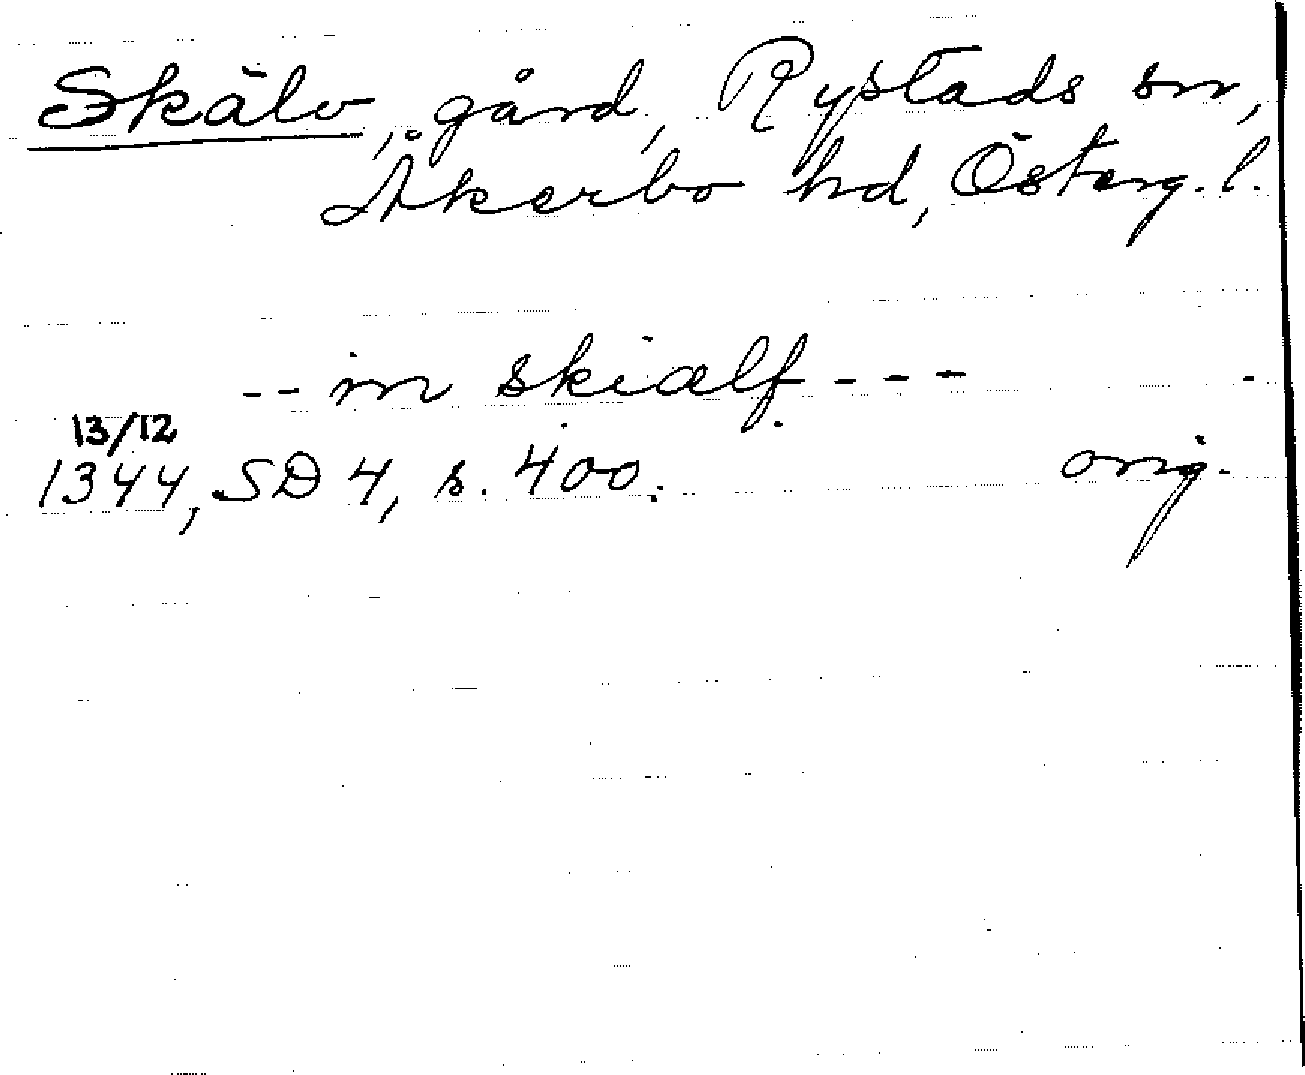 Skälv, gård, Rystads sn,
Åkerbo hd, Österg. l.
-- in skialf ---
13/12
1344, SD 4, s. 400. orig.